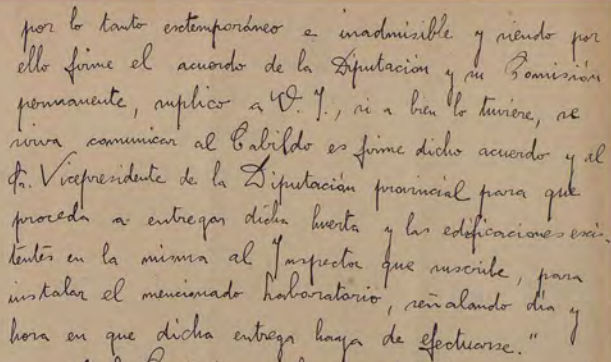 por lo tanto extemporáneo e inadmisible y siendo por
ello firme el acuerdo de la Diputación y su Comisión
permanente, suplico a V. I., si a bien lo tuviere, se
sirva comunicar al Cabildo es firme dicho acuerdo y al
Sr. Vicepresidente de la Diputación provincial para que
proceda a entregar dicha huerta y las edificaciones exis-
tentes en la misma al Inspector que suscribe, para
instalar el mencionado Laboratorio, señalando dia y
hora en que dicha entrega haya de efectuarse."